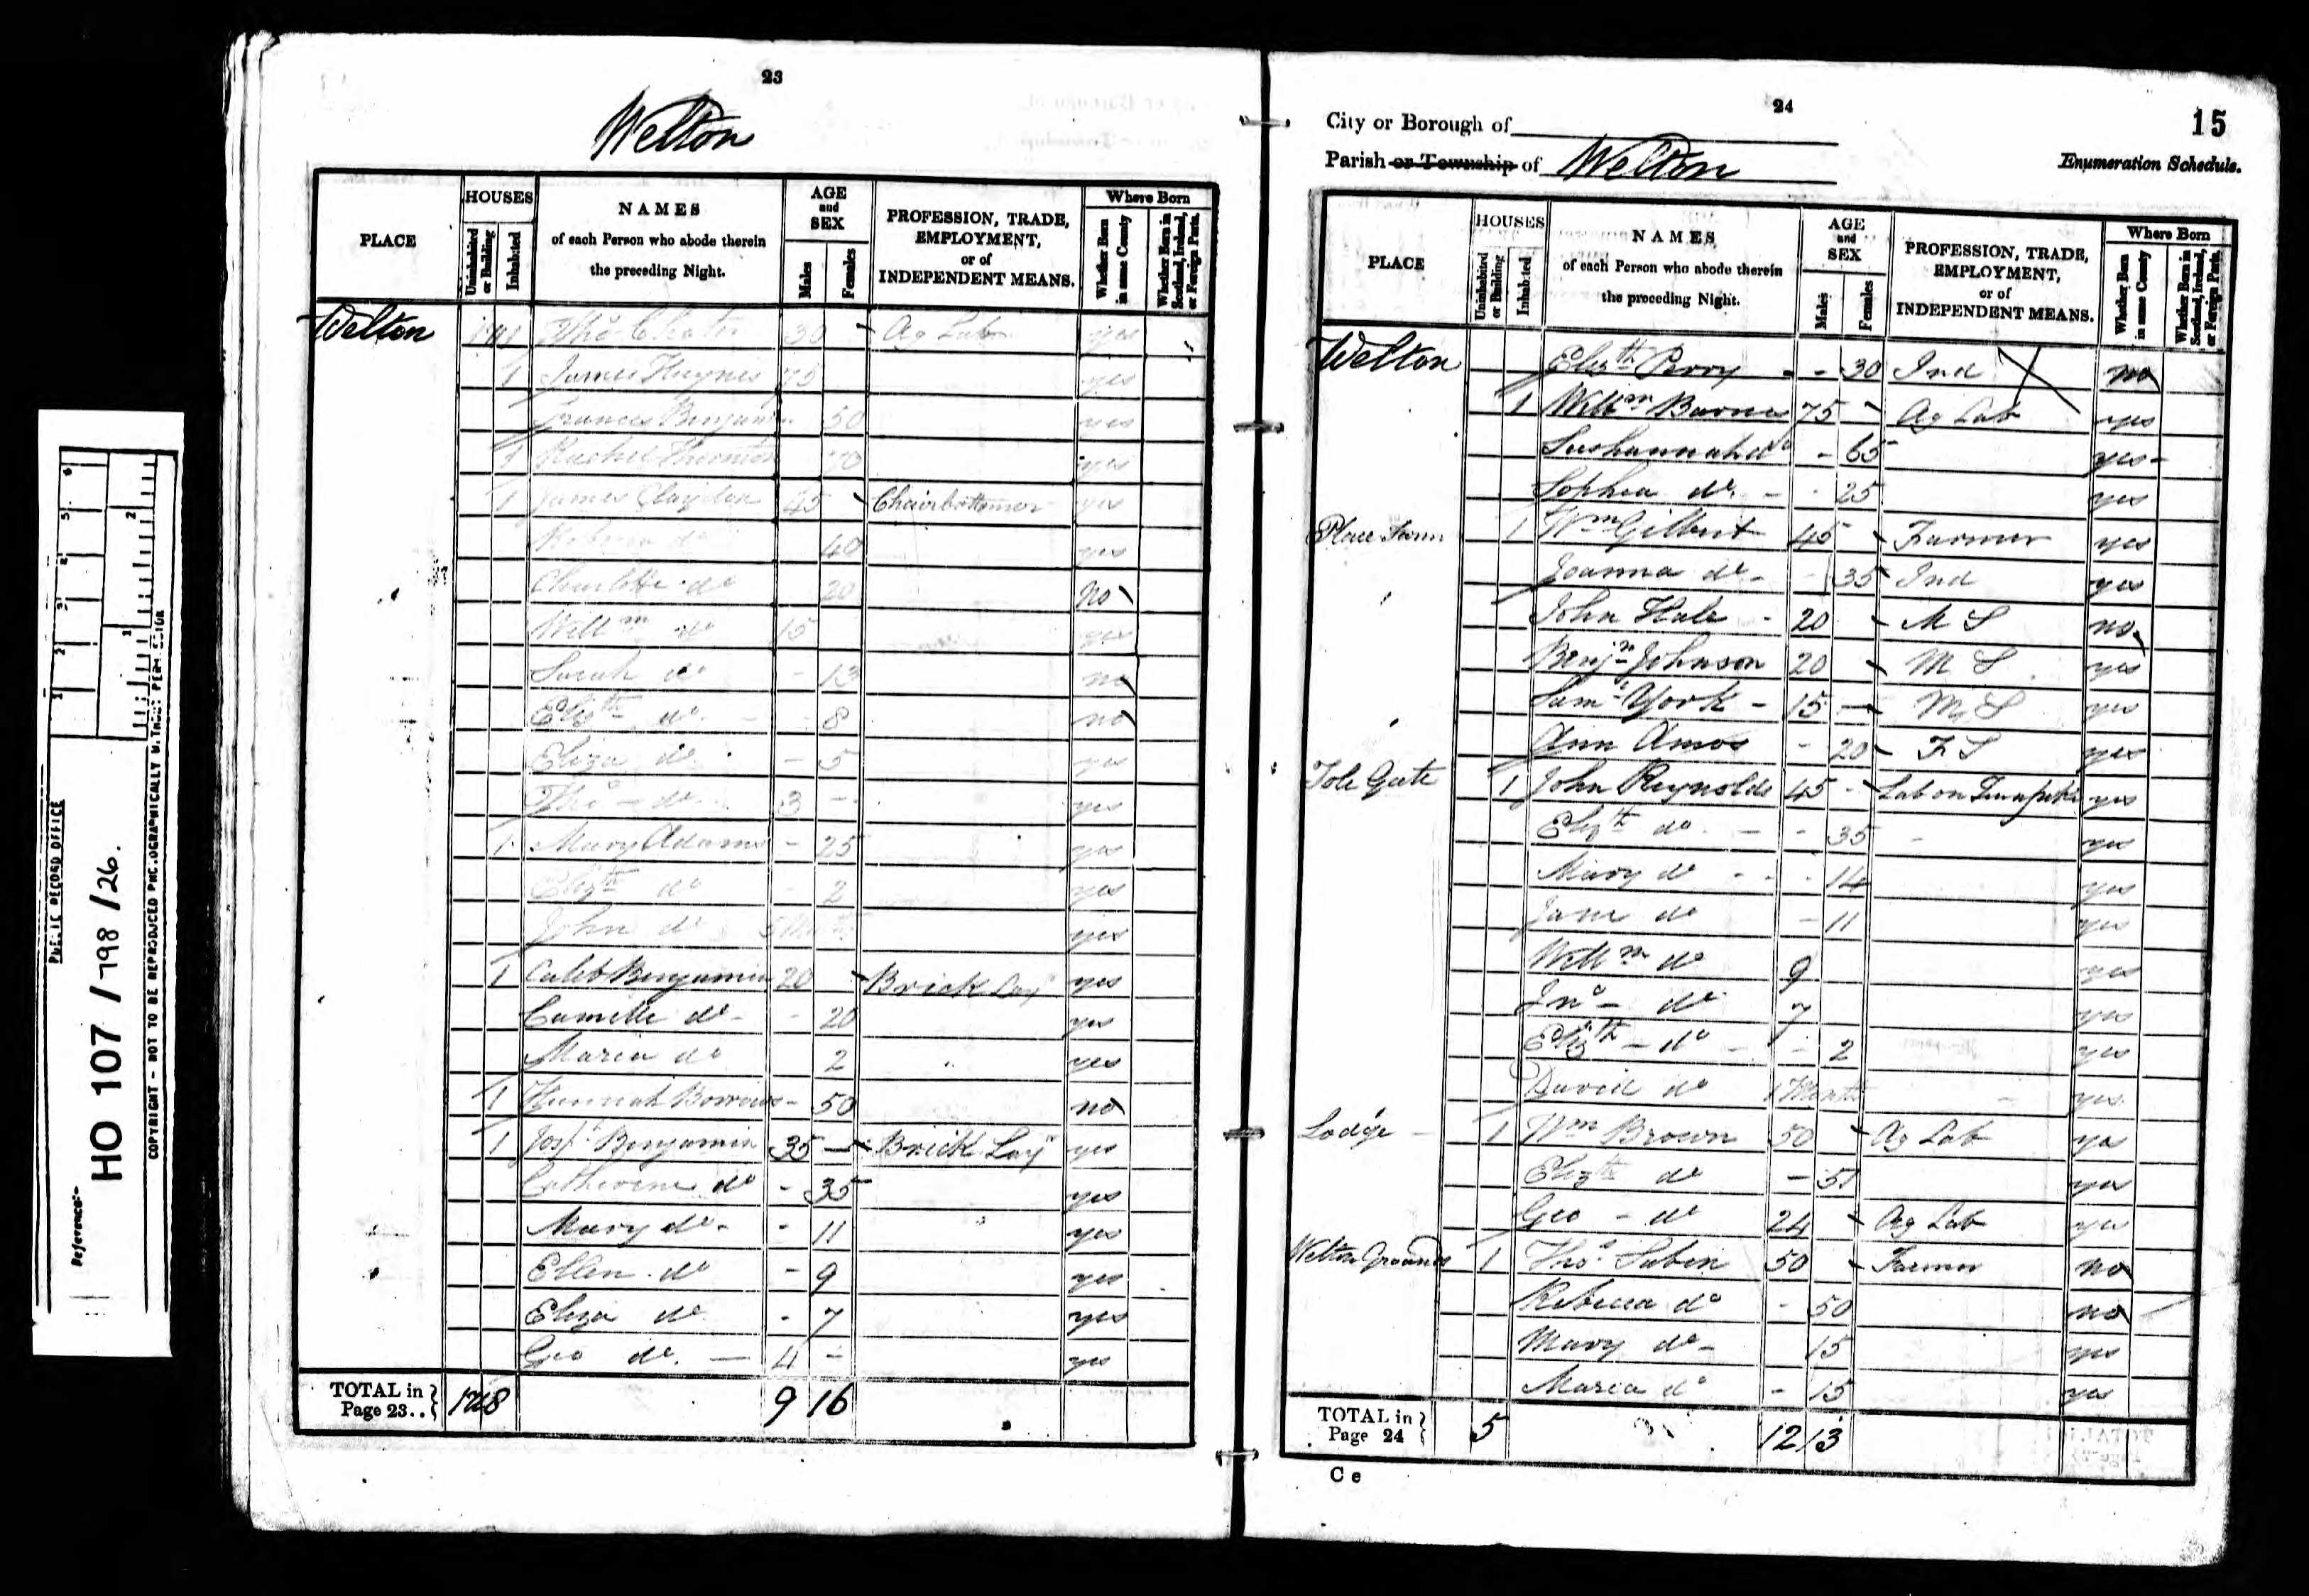 23
Welton
PLACE
HOUSES
Uninhabited or Building
Inhabited
NAMES
of each Person who abode therein
the preceding Night.
AGE
and
SEX
Males
Females
PROFESSION, TRADE,
EMPLOYMENT,
or of
INDEPENDENT MEANS.
Where Born
Whether Born in same County
Whether Born in Scotland, Ireland, or Foreign Parts.
Welton 1 Thos 30 Ag Lab yes
1 James Haynes 75 yes
Frances Benjamin 50 yes
1 Rachel Thornton 70 yes
1 James Claydon 45 Chairbottomer yes
Rebecca do 40 yes
Charlotte do 20 no
Willm do 15 yes
Sarah do - 13 no
Elizth do - 8 no
Eliza do - 5 yes
Thos do 3 - yes
1 Mary Adams - 25 yes
Elizth do - 2 yes
John do yes
1 Caleb Benjamin 20 Brick Layr yes
do - 20 yes
Maria do 2 yes
1 Hannah - 50 no
1 Josh Benjamin 35 - Brick Layr yes
Catherine do - 35 yes
Mary do - 11 yes
Ellen do - 9 yes
Eliza do - 7 yes
Geo do - 4 - yes
TOTAL in Page 23.. 8 9 16
24
15
City or Borough of
Parish or Township of Welton
Enumeration Schedule.
PLACE
HOUSES
Uninhabited or Building
Inhabited
NAMES
of each Person who abode therein
the preceding Night.
AGE
and
SEX
Males
Females
PROFESSION, TRADE,
EMPLOYMENT,
or of
INDEPENDENT MEANS.
Where Born
Whether Born in same County
Whether Born in Scotland, Ireland, or Foreign Parts.
Welton Elizth Perry - - 30 Ind no
1 Willm Barnes 75 - Ag Lab yes
Sushannah do - 65 yes
Sophia do - 25 yes
Place Farm 1 Wm Gilbert 45 Farmer yes
Joanna do - 35 Ind yes
John Hale - 20 M S no
Benjn Johnson 20 M S yes
Saml York - 15 - M S yes
Ann Amos - 20 F S yes
Tole Gate 1 John Reynolds 45 - Lab on Turnpike yes
Elizth do - - 35 yes
Mary do - 14 yes
Jane do - 11 yes
Willm do 9 yes
Jno - do 7 yes
Elizth - do - 2 yes
David do 1 Month yes
Lodge 1 Wm Brown 50 Ag Lab yes
Elizth do - 51 yes
Geo - do 24 Ag Lab yes
Welton Grounds 1 Thos Sabin 50 Farmer no
Rebecca do - 50 no
Mary do - 15 yes
Maria do - 15 yes
TOTAL in Page 24 5 12 13
C e
PUBLIC RECORD OFFICE
Reference:-
HO 107 / 798 / 26.
COPYRIGHT - NOT TO BE REPRODUCED PHOTOGRAPHICALLY WITHOUT PERMISSION